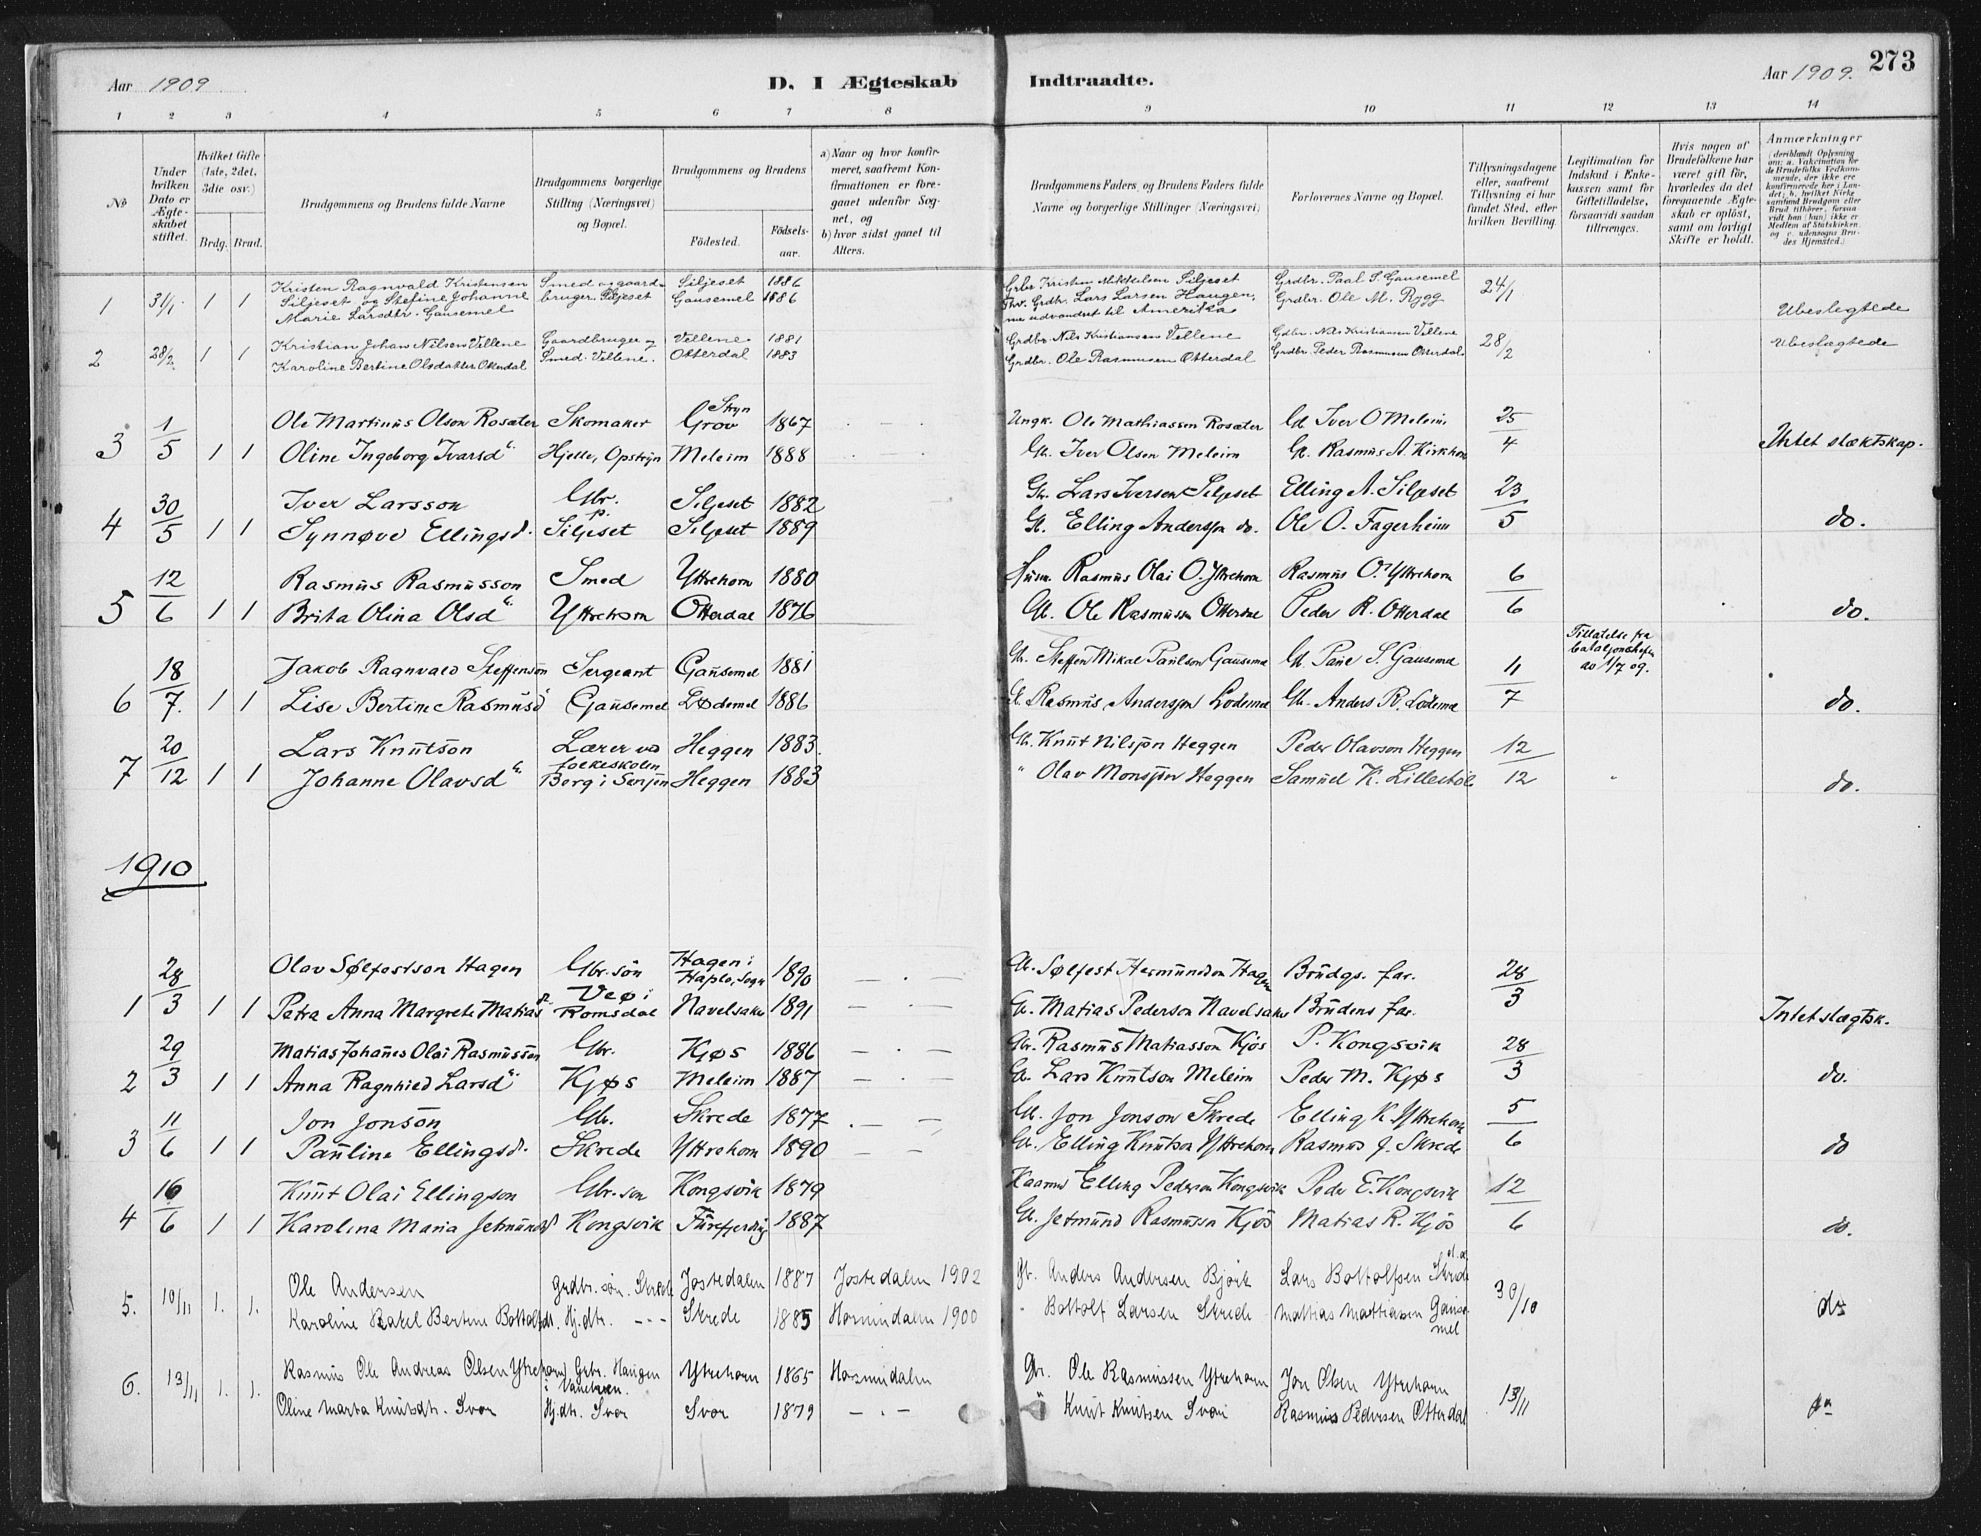 Aar 1909
D. I Ægteskab
Indtraadte.
Aar 1909.
273
1 2 3 4 5 6 7 8 9 10 11 12 13 14
No
Under hvilken Dato er Ægteskabet stiftet.
Hvilket Gifte (1ste, 2det, 3die osv.)
Brdg. Brud.
Brudgommens og Brudens fulde Navne
Brudgommens borgerlige Stilling (Næringsvei) og Bopæl.
Brudgommens og Brudens
Fødested.
Fødselsaar.
a) Naar og hvor konfirmeret, saafremt Konfirmationen er foregaaet udenfor Sognet, og
b) hvor sidst gaaet til Alters.
Brudgommens Faders og Brudens Faders fulde Navne og borgerlige Stillinger (Næringsvei)
Forlovernes Navne og Bopæl.
Tillysningsdagene eller, saafremt Tillysning ei har fundet Sted, efter hvilken Bevilling.
Legitimation for Indskud i Enkekassen samt for Giftetilladelse, forsaavidt saadan tiltrænges.
Hvis nogen af Brudefolkene har været gift før, hvorledes da det foregaaende Ægteskab er opløst, samt om lovligt Skifte er holdt.
Anmærkninger (deriblandt Oplysning om: a. Vakcination for de Brudefolks Vedkommende, der ikke ere konfirmerede her i Landet; b. hvilket Kirkesamfund Brudgom eller Brud tilhører, forsaavidt han (hun) ikke er Medlem af Statskirken, og c. udensogns Brudes Hjemsted.)
Kristen Ragnvald Kristensen Smed og gaard- Siljeset 1886 Kristen Mikkelsen Siljeset Grdbr. Paal S. Gausemel 24/1
1 31/1 1 1 Siljeset og Stefine Johanne bruger. Siljeset Gausemel 1886 Lars Larsen Haugen, Grdbr. Ole M. Rygg
Marie Larsdtr. Gausemel udvandret til Amerika Ubeslegtede
Kristian Johan Nilsen Vellene Gaardbruger og Vellene 1881 Grdbr. Nils Kristiansen Vellene Gdbr. Nils Kristiansen Vellene 28/2 Ubeslægtede
2 28/2 1 1 Karoline Bertine Olsdatter Otterdal Smed. Vellene. Otterdal 1883 Grdbr. Ole Rasmussen Otterdal Grdbr. Peder Rasmussen Otterdal
Ole Martinus Olson Rosæter Skomaker Stryn Grov 1867 Ungk. Ole Mathiassen Rosæter Iver O Meleim 25
3 1/5 1 1 Oline Ingeborg Ivarsd. Hjelle, Opstryn Meleim 1888 Gb. Iver Olsen Meleim Rasmus A. Kirkhorn 4 Intet slæktskap.
Iver Larsson Gbr. Siljeset 1882 Gb. Lars Iversen Siljeset Elling A. Siljeset 23
4 30/5 1 1 Synnøve Ellingsd. p. Siljeset Siljeset 1889 Elling Andersson do. Ole O. Fagerheim 5 do.
Rasmus Rasmusson Smed Yttrehorn 1880 Rasmus Olai O. Yttrehorn Rasmus O. Yttrehorn 6
5 12/6 1 1 Brita Olina Olsd. Yttrehorn Otterdal 1876 Gb. Ole Rasmussen Otterdal Peder R. Otterdal 6 do.
Jakob Ragnvald Steffenson Sergeant Gausemel 1881 Gb. Steffen Mikal Paulson Gausemel S. Gausemel 11 Tillatelse fra bataljonschefen av 1/7 09.
6 18/7. 1 1 Lise Bertine Rasmusd. Gausemel Lødemel 1886 Rasmus Andersson Lødemel Gb. Anders R. Lødemel 7 do.
Lars Knutson Lærer ved Heggen 1883. Gb. Knut Nilsson Heggen Peder Olavson Heggen 12
7 20/12 1 1 Johanne Olavsd. folkeskolen Berg i Senjen Heggen 1883 " Olav Monsson Heggen Samuel K. Lillestøl 12 do.
1910
Olav Sølfestson Hagen Gbr. søn Hagen i Hafslo, Sogn 1890 Gb. Sølfest Hermundson Hagen Brudgs. far. 28
1 28/3 1 1 Petra Anna Margrete Matiasd. Veø i Romsdal Navelsaker 1891 Gb. Matias Pederson Navelsaker Brudens far. 3 Intet slægtsk.
Matias Johanes Olai Rasmusson Gbr. Kjøs 1886 Gbr. Rasmus Matiasson Kjøs P. Kongsvik 28
2 29/3 1 1 Anna Ragnhild Larsd. Kjøs Meleim 1887 Gb. Lars Knutson Meleim Peder M. Kjøs 3 do.
Jon Jonson Gb. Skrede 1877 Gb. Jon Jonson Skrede Elling K. Yttrehorn 5
3 11/6 1 1 Pauline Ellingsd. Skrede Yttrehorn 1890 Gb. Elling Knutson Yttrehorn Rasmus J. Skrede 6 do
Knut Olai Ellingson Gbr. son Kongsvik 1879 Kaarm. Elling Pederson Kongsvik Peder E. Kongsvik 12
4 16/6 1 1 Karolina Maria Jetmundsd. Kongsvik 1887 Gb. Jetmund Rasmusson Kjøs Matias R. Kjøs 6 do.
Ole Andersen Grdbr. søn. Skrede Jostedalen 1887 Jostedalen 1902 Gb. Anders Andersen Bjørk Lars Bottolfsen Skrede 30/10
5. 10/11 1. 1. Karoline Rakel Bertine Bottolfsdt. Hj.dtr. --- Skrede 1885 Hornindalen 1900 " Bottolf Larsen Skrede Mattias Mattiasen Gausemel do
Rasmus Ole Andreas Olsen Ytrehorn Grbr. Haugen i Vanelven. Ytrehorn 1865 Hornindalen Gbr. Ole Rasmussen Ytrehorn Jon Olsen Ytrehorn 13/11
6. 13/11 1. 1. Oline Marta Knutsdtr. Svor Hj.dtr. Svor Svor 1879 " Knut Knutsen Svor Rasmus Pedersen Otterdal do